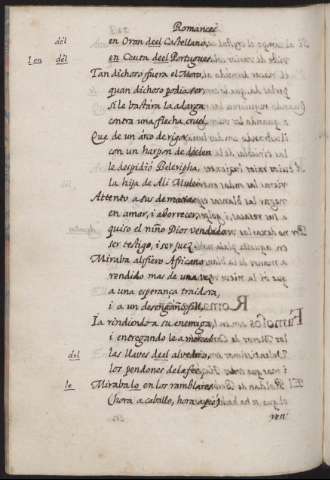 Romances
dēl en Oran deel Castellano,
Leu dēl en Ceuta deel Portugues
Tan dichoso fuera el Moro
quan dichoso podia ser,
si le bastara la adarga
contra una flecha cruel,
Que de un arco de rigor
con un harpon de desden
le despidiò Belerifa,
la hija de Ali Muley.
Attento a sus demasias
en amar, i aborrecer,
quiso el niño Dios vendado
ser testigo, i ser juez.
Miraba al fiero Africano
rendido mas de una vez
a una esperança traidora,
i a un desengaño fiel.
Ia rindiendo a su enemiga,
i entregando le a merced
del las llaves deel alvedrio,
los pendones de la fee.
le Mirabalo en los ramblares
(hora a caballo, hora a pie)
ren